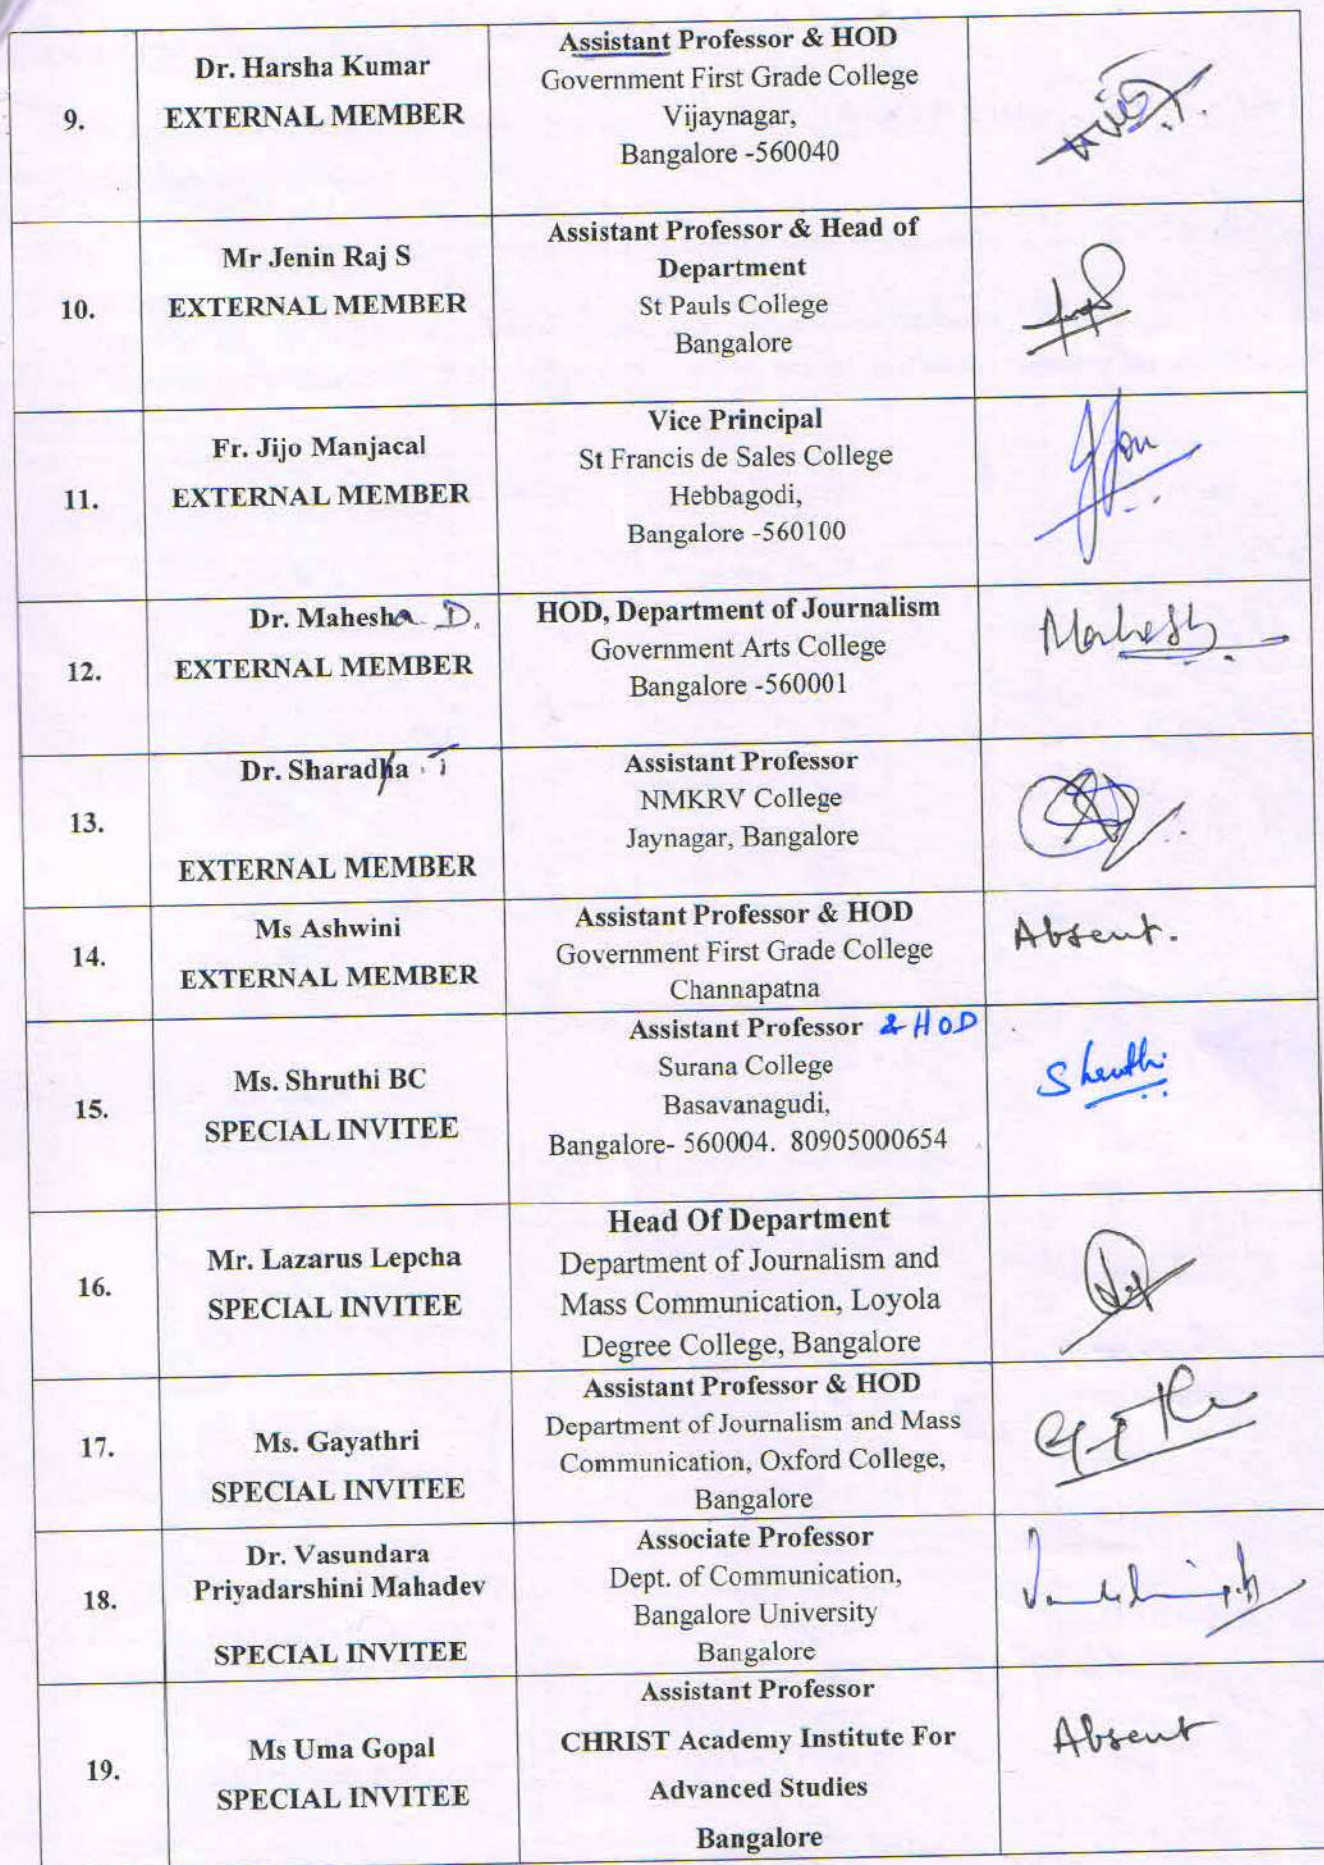 9.
Dr. Harsha Kumar
EXTERNAL MEMBER
Assistant Professor & HOD
Government First Grade College
Vijaynagar,
Bangalore -560040
10.
Mr Jenin Raj S
EXTERNAL MEMBER
Assistant Professor & Head of
Department
St Pauls College
Bangalore
11.
Fr. Jijo Manjacal
EXTERNAL MEMBER
Vice Principal
St Francis de Sales College
Hebbagodi,
Bangalore -560100
12.
Dr. Mahesha D.
EXTERNAL MEMBER
HOD, Department of Journalism
Government Arts College
Bangalore -560001
Mahesh
13.
Dr. Sharadha
EXTERNAL MEMBER
Assistant Professor
NMKRV College
Jaynagar, Bangalore
14.
Ms Ashwini
EXTERNAL MEMBER
Assistant Professor & HOD
Government First Grade College
Channapatna
Absent.
15.
Ms. Shruthi BC
SPECIAL INVITEE
Assistant Professor & HOD
Surana College
Basavanagudi,
Bangalore- 560004. 80905000654
Shruthi
16.
Mr. Lazarus Lepcha
SPECIAL INVITEE
Head Of Department
Department of Journalism and
Mass Communication, Loyola
Degree College, Bangalore
17.
Ms. Gayathri
SPECIAL INVITEE
Assistant Professor & HOD
Department of Journalism and Mass
Communication, Oxford College,
Bangalore
18.
Dr. Vasundara
Priyadarshini Mahadev
SPECIAL INVITEE
Associate Professor
Dept. of Communication,
Bangalore University
Bangalore
19.
Ms Uma Gopal
SPECIAL INVITEE
Assistant Professor
CHRIST Academy Institute For
Advanced Studies
Bangalore
Absent